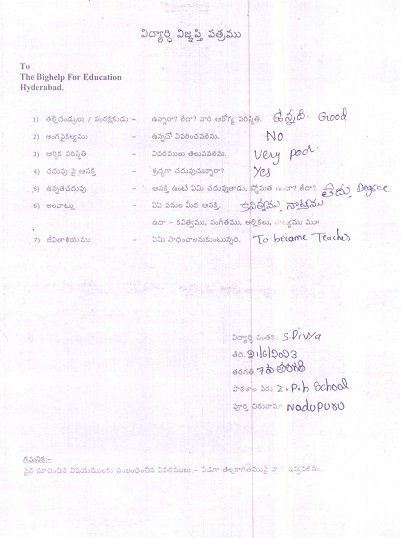 విద్యార్థి విజ్ఞప్తి పత్రము
To
The Bighelp For Education
Hyderabad.
1) తల్లిదండ్రులు / సంరక్షకుడు - ఉన్నారా? లేదా? వారి ఆరోగ్య పరిస్థితి. Good
2) అంగవైకల్యము - ఉన్నచో వివరించవలెను. No
3) ఆర్థిక పరిస్థితి - వివరములు తెలుపవలెను. Very poor
4) చదువు పై ఆసక్తి - శ్రద్ధగా చదువుచున్నారా? Yes
5) ఉన్నతచదువు - ఆసక్తి ఉంటే ఏమి చదువుతాడు. స్తోమత ఉందా? లేదా? లేదు, Degree
6) అలవాట్లు - ఏఏ పనుల మీద ఆసక్తి. కవిత్వము, నాట్యము
ఉదా - కవిత్వము, సంగీతము, అల్లికలు, నాట్యము మొ॥
7) జీవితాశయము - ఏమి సాధించాలనుకుంటున్నది. To become Teacher
విద్యార్థి సంతకం: S. Divya
తేది: 21/6/2003
తరగతి: 7వ తరగతి
పాఠశాల పేరు: Z.P.h School
పూర్తి చిరునామా: Nadupuru
గమనిక:-
పైన సూచించిన విషయములకు సంబంధించిన వివరములు - విడిగా తెల్లకాగితముపై వ్రాసి ఇవ్వవలెను.